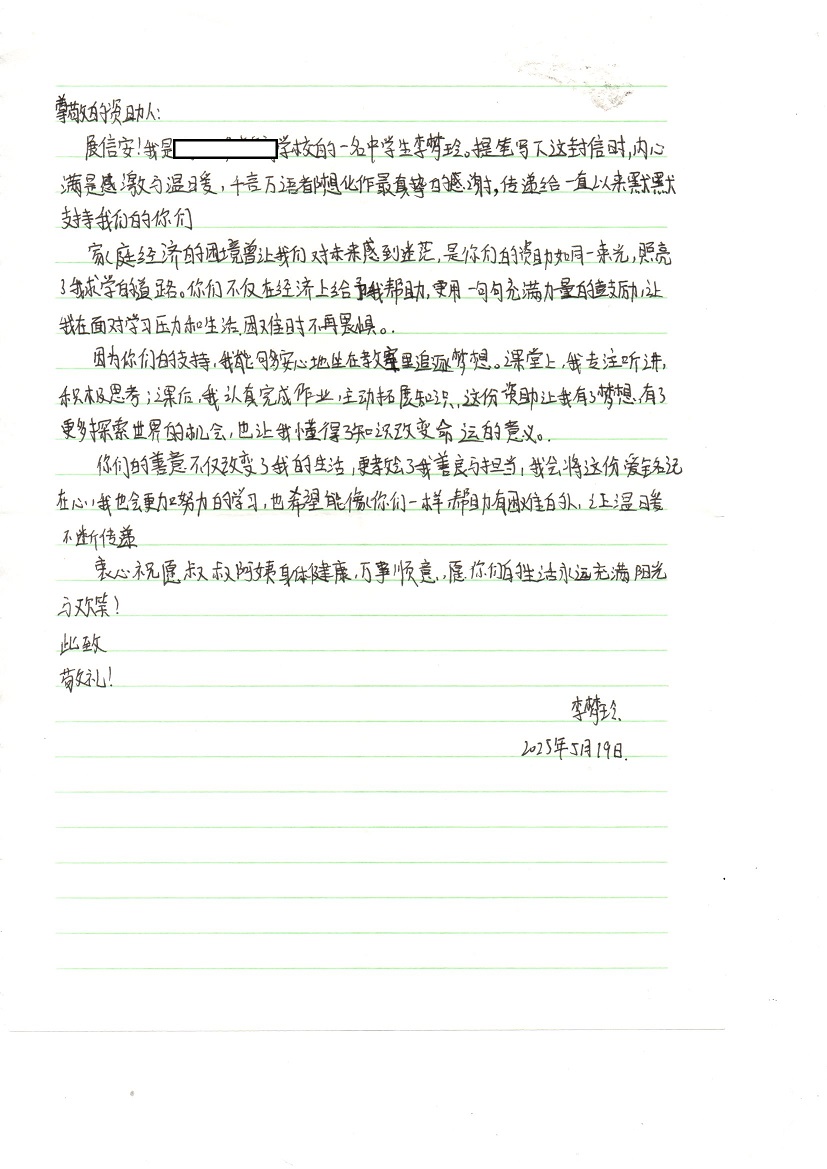 尊敬的资助人:
展信安!我是学校的一名中学生李梦玲。提笔写下这封信时,内心
满是感激与温暖,千言万语都想化作最真挚的感谢,传递给一直以来默默
支持我们的你们
家庭经济的困境曾让我们对未来感到迷茫,是你们的资助如同一束光,照亮
了我求学的道路。你们不仅在经济上给予我帮助,更用一句句充满力量的鼓励,让
我在面对学习压力和生活困难时不再畏惧。
因为你们的支持,我能够安心地坐在教室里追逐梦想。课堂上,我专注听讲,
积极思考;课后,我认真完成作业,主动拓展知识,这份资助让我有了梦想,有了
更多探索世界的机会,也让我懂得了知识改变命运的意义。
你们的善意不仅改变了我的生活,更教会了我善良与担当,我会将这份爱铭记
在心,我也会更加努力的学习,也希望能像你们一样,帮助有困难的人,让温暖
不断传递
衷心祝愿叔叔阿姨身体健康,万事顺意,愿你们的生活永远充满阳光
与欢笑!
此致
敬礼!
李梦玲
2025年5月19日.